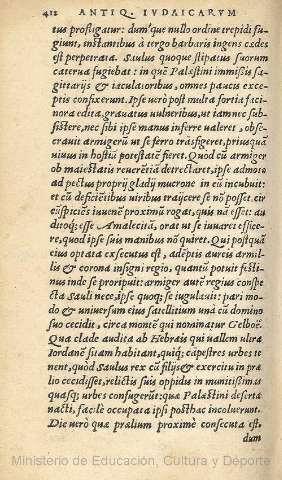 412 ANTIQ. IVDAICARVM
tus profligatur: dumq́ue nullo ordine trepidi fu-
giunt, instantibus à tergo barbaris ingens cædes
est perpetrata. Saulus quoque stipatus suorum
caterua fugiebat: in quẽ Palæstini immissis sa-
gittarijs & iaculatoribus, omnes paucis exce-
ptis confixerunt. Ipse verò post multa fortia faci-
nora ædita, grauatus vulneribus, vt iam nec sub-
sistere, nec sibi ipse manus inferre valeret, obse-
crauit armigerũ vt se ferro trãsfigeret, priusquã
viuus in hostiũ potestatẽ fieret. Quod cũ armiger
ob maiestatis reuerẽtiã detrectaret, ipse admoto
ad pectus proprij gladij mucrone in eũ incubuit:
et cũ deficiẽtibus viribus traijcere se nõ posset, cir
cũspiciẽs iuuenẽ proximũ rogat, quis nã esset: au
ditoq́; esse Amalecitã, orat vt se iuuaret efficĕ-
re, quod ipse suis manibus nõ quiret. Qui postquã
eius optata executus est, adẽptis aureis armil-
lis & corona insigni regio, quantũ potuit festi-
nus inde se proripuit: armiger autẽ regius conspe
cta Sauli nece, ipse quoq; se iugulauit: pari mo-
do & vniuersum eius satellitium vnà cũ domino
suo cecidit, circa montẽ qui nominatur Gelboë.
Qua clade audita ab Hebræis qui vallem vltra
Iordanẽ sitam habitant, quiq́; cãpestres vrbes te
nent, quòd Saulus rex cũ filijs & exercitu in præ
lio cecidisset, relictis suis oppidis in munitissimas
quasq; vrbes confugerũt: quæ Palæstini deserta
nacti, facilè occupata ipsi posthac incoluerunt.
Die verò quæ prælium proximè consecuta est
dum
Ministerio de Educación, Cultura y Deporte